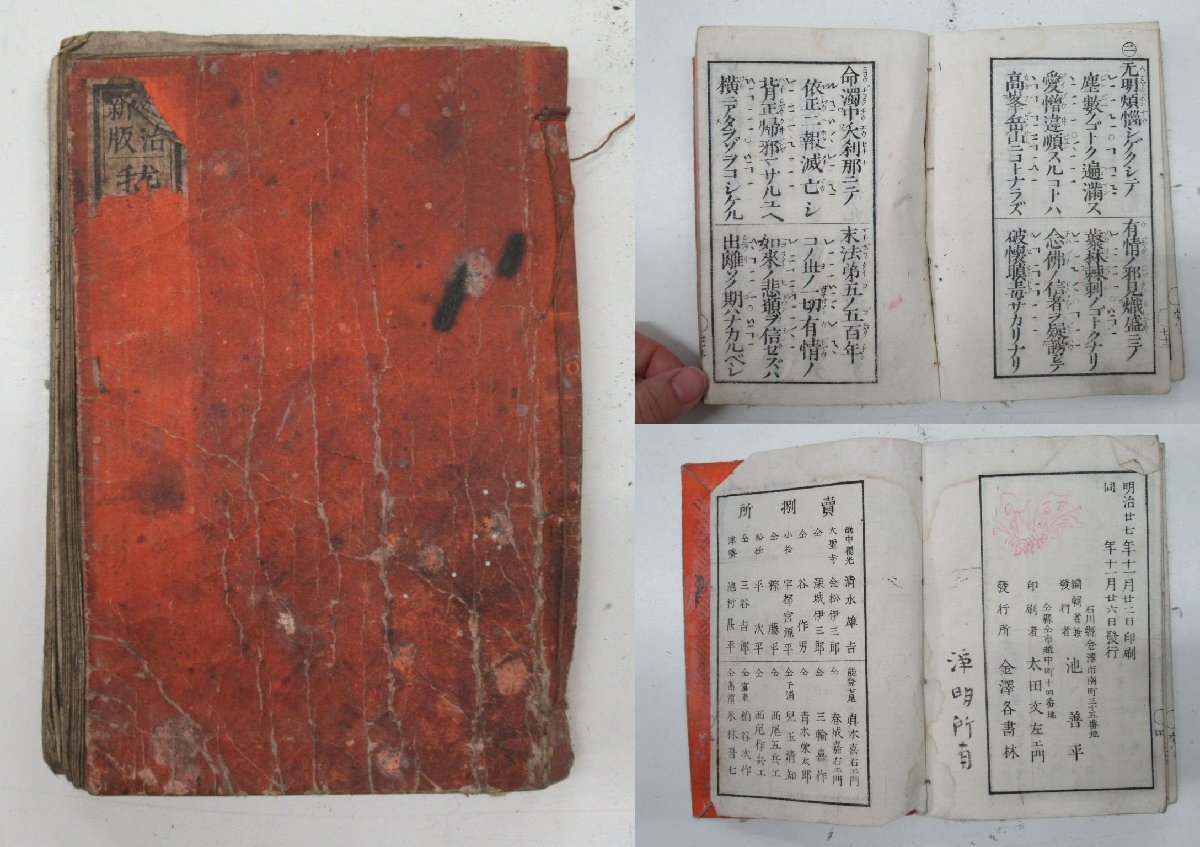 改治
新版
㊁无明煩惱シゲクシテ 有情ノ邪見熾盛ニテ
塵數ノゴトク遍滿ス 叢林棘刺ノゴトクナリ
愛憎違順スルコトハ 念佛ノ信者ヲ疑謗シテ
高峯岳山ニコトナラズ 破懷瞋毒サカリナリ
命濁中夭刹那ニテ 末法第五ノ五百年
依正二報滅亡シ コノ世ノ一切有情ノ
背正歸邪マサルユヘ 如來ノ悲願ヲ信ゼズハ
橫ニアタヲゾヲコシケル 出離ソノ期ハナカルベシ
明治廿七年十一月廿二日印刷
同 年十一月廿六日發行
石川縣金澤市南町三十五番地
編輯者兼發行者 池善平
仝縣仝市越中町十四番地
印刷者 太田文左エ門
發行所 金澤各書林
漳明所有
賣捌所
越中福光 清水庫吉 能登七尾 眞水喜右エ門
大聖寺 仝松伊三郎 仝 春成嘉右エ門
仝 深城伊三郎 仝 三輪喜作
仝 谷作男 仝 青木榮太郎
小松 宇都宮源平 仝子浦 兒玉清知
仝 輝藤平 仝 西尾五兵エ
松任 平次平 仝 西尾作兵エ
仝 三谷吉郎 仝富來 柏谷次作
津幡 池村甚平 仝高濱 永林吾七